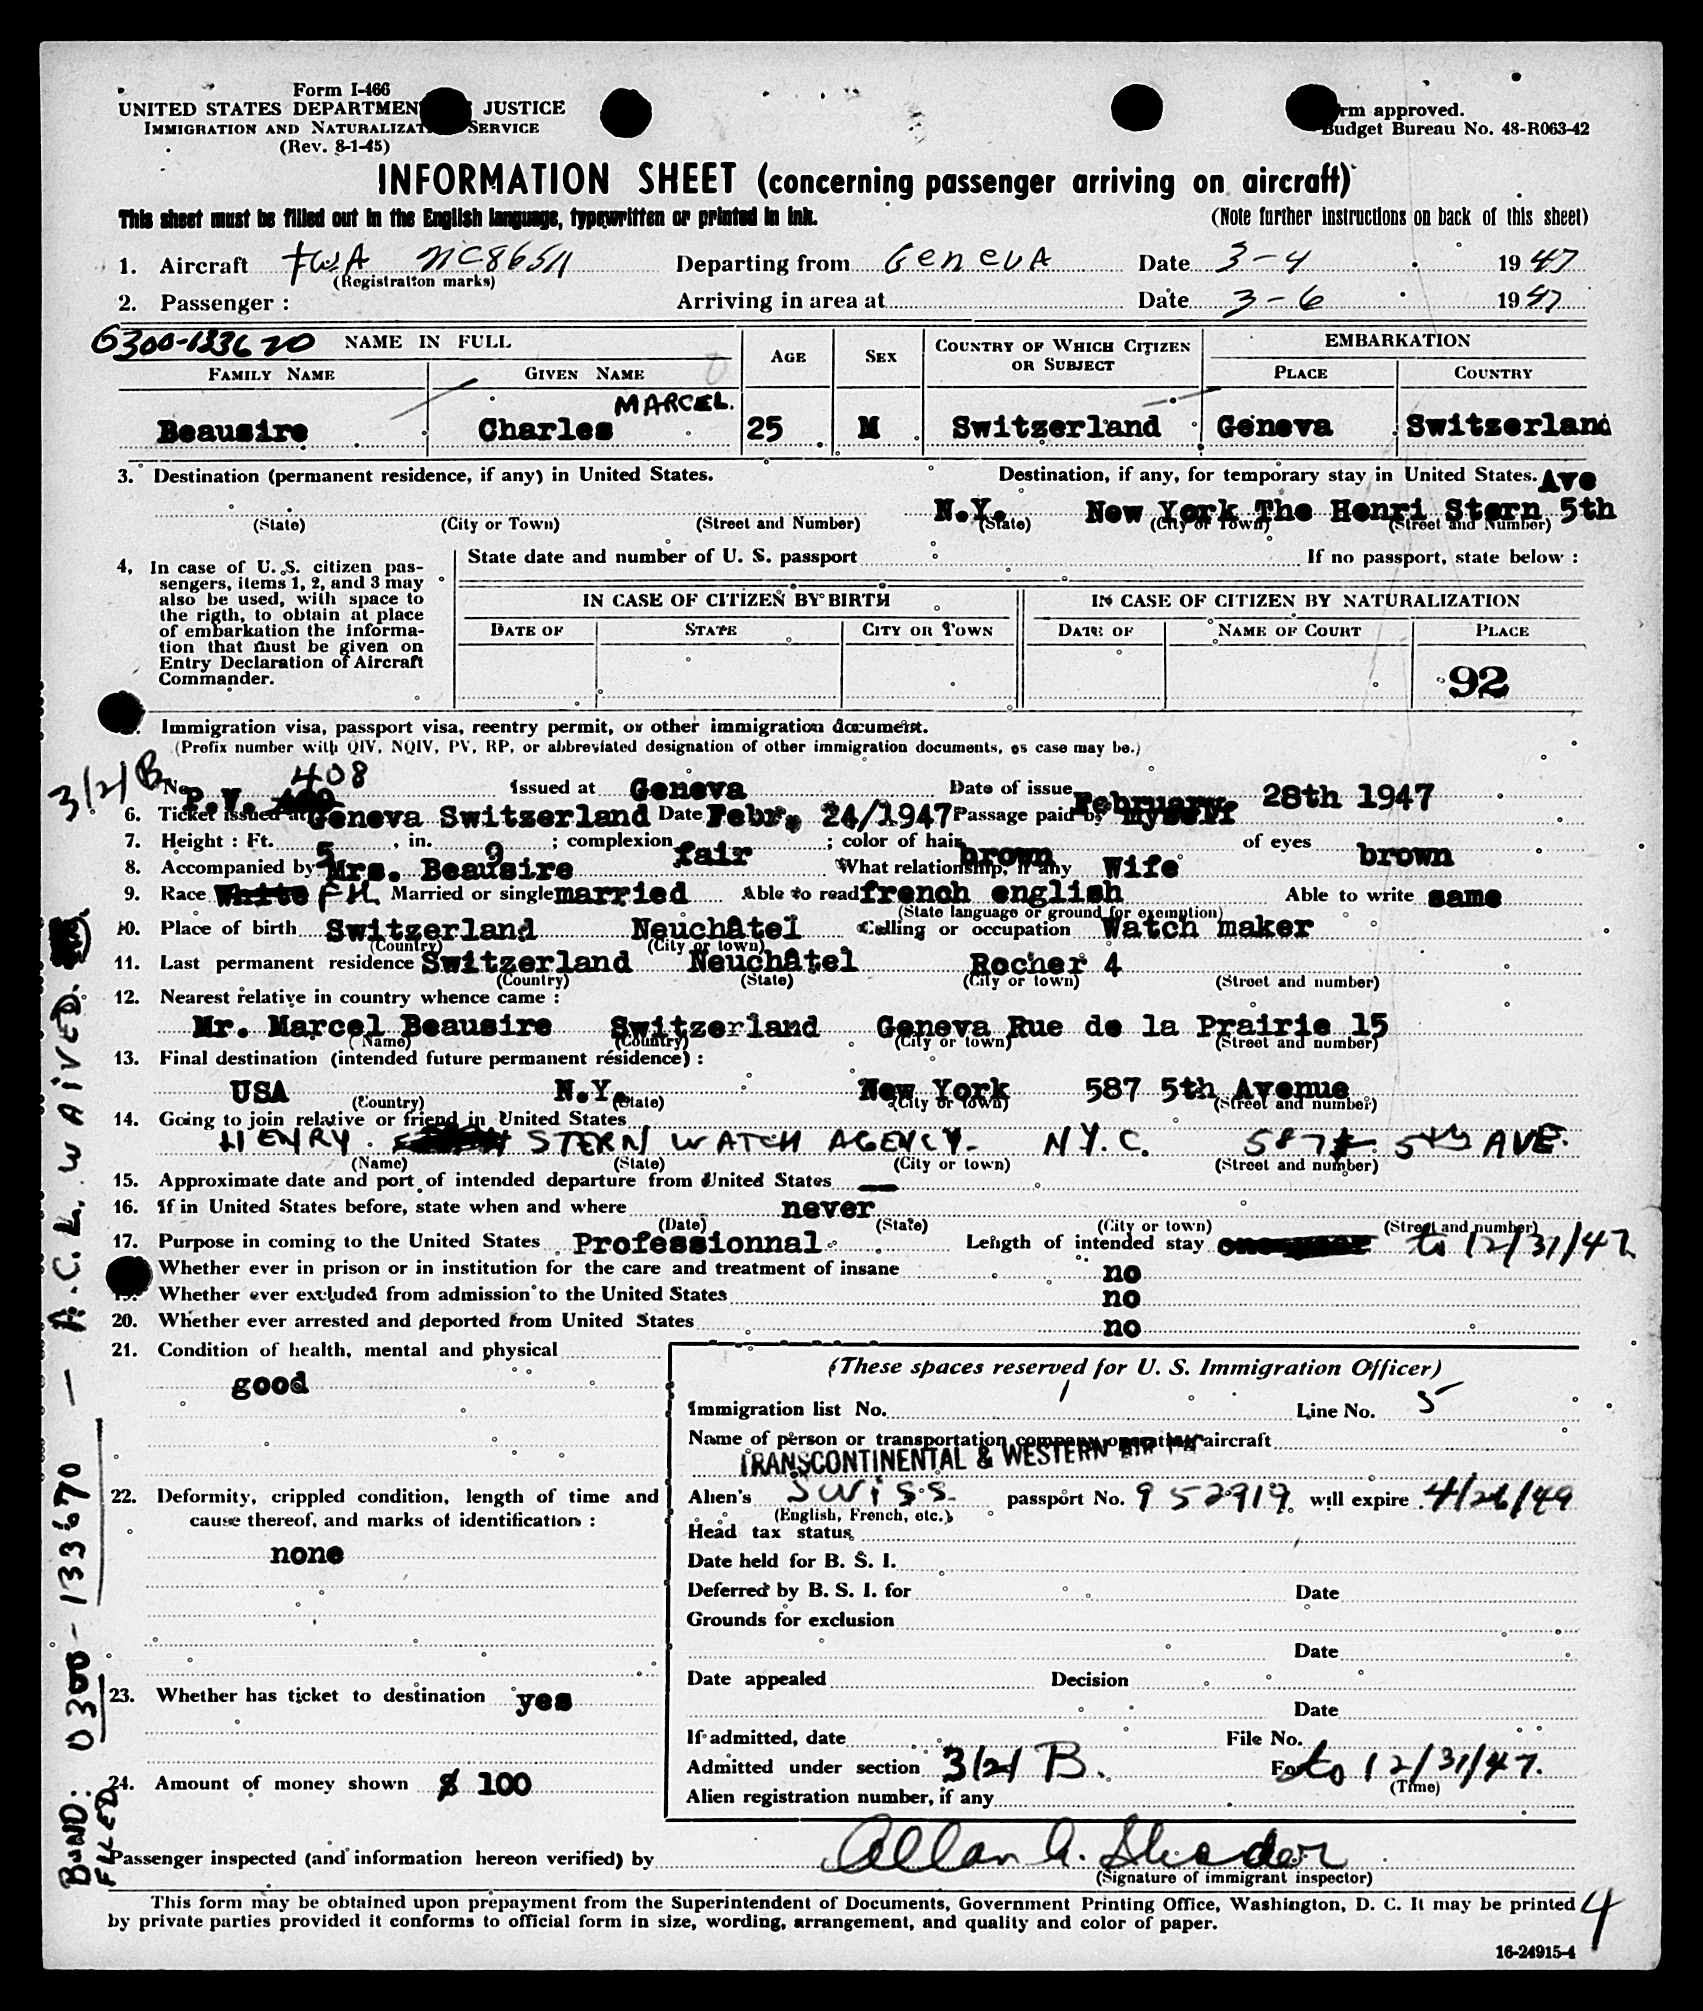 Form I-466
UNITED STATES DEPARTMENT JUSTICE
IMMIGRATION AND NATURALIZATION SERVICE
(Rev. 8-1-45)
rm approved.
Budget Bureau No. 48-R063-42
INFORMATION SHEET (concerning passenger arriving on aircraft)
This sheet must be filled out in the English language, typewritten or printed in ink.
(Note further instructions on back of this sheet)
1. Aircraft TWA NC86511 Departing from Geneva Date 3-4 1947
(Registration marks)
2. Passenger : Arriving in area at Date 3-6 1947
0300-133670 NAME IN FULL AGE SEX COUNTRY OF WHICH CITIZEN OR SUBJECT EMBARKATION
FAMILY NAME GIVEN NAME PLACE COUNTRY
MARCEL.
Beausire Charles 25 M Switzerland Geneva Switzerland
3. Destination (permanent residence, if any) in United States. Destination, if any, for temporary stay in United States. Ave
N.Y. New York The Henri Stern 5th
(State) (City or Town) (Street and Number) (State) (City or Town) (Street and Number)
4. In case of U. S. citizen pas-
sengers, items 1, 2, and 3 may
also be used, with space to
the rigth, to obtain at place
of embarkation the informa-
tion that must be given on
Entry Declaration of Aircraft
Commander.
State date and number of U. S. passport If no passport, state below :
IN CASE OF CITIZEN BY BIRTH IN CASE OF CITIZEN BY NATURALIZATION
DATE OF STATE CITY OR TOWN DATE OF NAME OF COURT PLACE
92
Immigration visa, passport visa, reentry permit, or other immigration document.
(Prefix number with QIV, NQIV, PV, RP, or abbreviated designation of other immigration documents, as case may be.)
3/2/B
No. P.V. 408 Issued at Geneva Date of issue February 28th 1947
6. Ticket issued at Geneva Switzerland Date Febr. 24/1947 Passage paid by myself
7. Height : Ft. 5 , in. 9 ; complexion fair ; color of hair brown of eyes brown
8. Accompanied by Mrs. Beausire What relationship, if any Wife
9. Race White FH. Married or single married Able to read french english Able to write same
(State language or ground for exemption)
10. Place of birth Switzerland Neuchâtel Calling or occupation Watch maker
(Country) (City or town)
11. Last permanent residence Switzerland Neuchâtel Rocher 4
(Country) (State) (City or town) (Street and number)
12. Nearest relative in country whence came :
Mr. Marcel Beausire Switzerland Geneva Rue de la Prairie 15
(Name) (Country) (City or town) (Street and number)
13. Final destination (intended future permanent résidence) :
USA N.Y. New York 587 5th Avenue
(Country) (State) (City or town) (Street and number)
14. Going to join relative or friend in United States
HENRY STERN WATCH AGENCY- N.Y.C. 587 5th AVE.
(Name) (State) (City or town) (Street and number)
15. Approximate date and port of intended departure from United States —
16. If in United States before, state when and where never
(Date) (State) (City or town) (Street and number)
17. Purpose in coming to the United States Professionnal Length of intended stay one year to 12/31/47
Whether ever in prison or in institution for the care and treatment of insane no
19. Whether ever excluded from admission to the United States no
20. Whether ever arrested and deported from United States no
21. Condition of health, mental and physical
good
22. Deformity, crippled condition, length of time and
cause thereof, and marks of identification :
none
23. Whether has ticket to destination yes
24. Amount of money shown $ 100
(These spaces reserved for U. S. Immigration Officer)
Immigration list No. 1 Line No. 5
Name of person or transportation company operating aircraft
TRANSCONTINENTAL & WESTERN AIR
Alien's SWISS passport No. 952919 will expire 4/26/49
(English, French, etc.)
Head tax status
Date held for B. S. I.
Deferred by B. S. I. for Date
Grounds for exclusion
Date
Date appealed Decision
Date
If admitted, date File No.
Admitted under section 3/2/ B. For to 12/31/47.
(Time)
Alien registration number, if any
Passenger inspected (and information hereon verified) by Allan A. Shador
(Signature of immigrant inspector)
This form may be obtained upon prepayment from the Superintendent of Documents, Government Printing Office, Washington, D. C. It may be printed
by private parties provided it conforms to official form in size, wording, arrangement, and quality and color of paper.
4
16-24915-4
BOND: 0300-133670 — A.C.L. WAIVED.
FILED